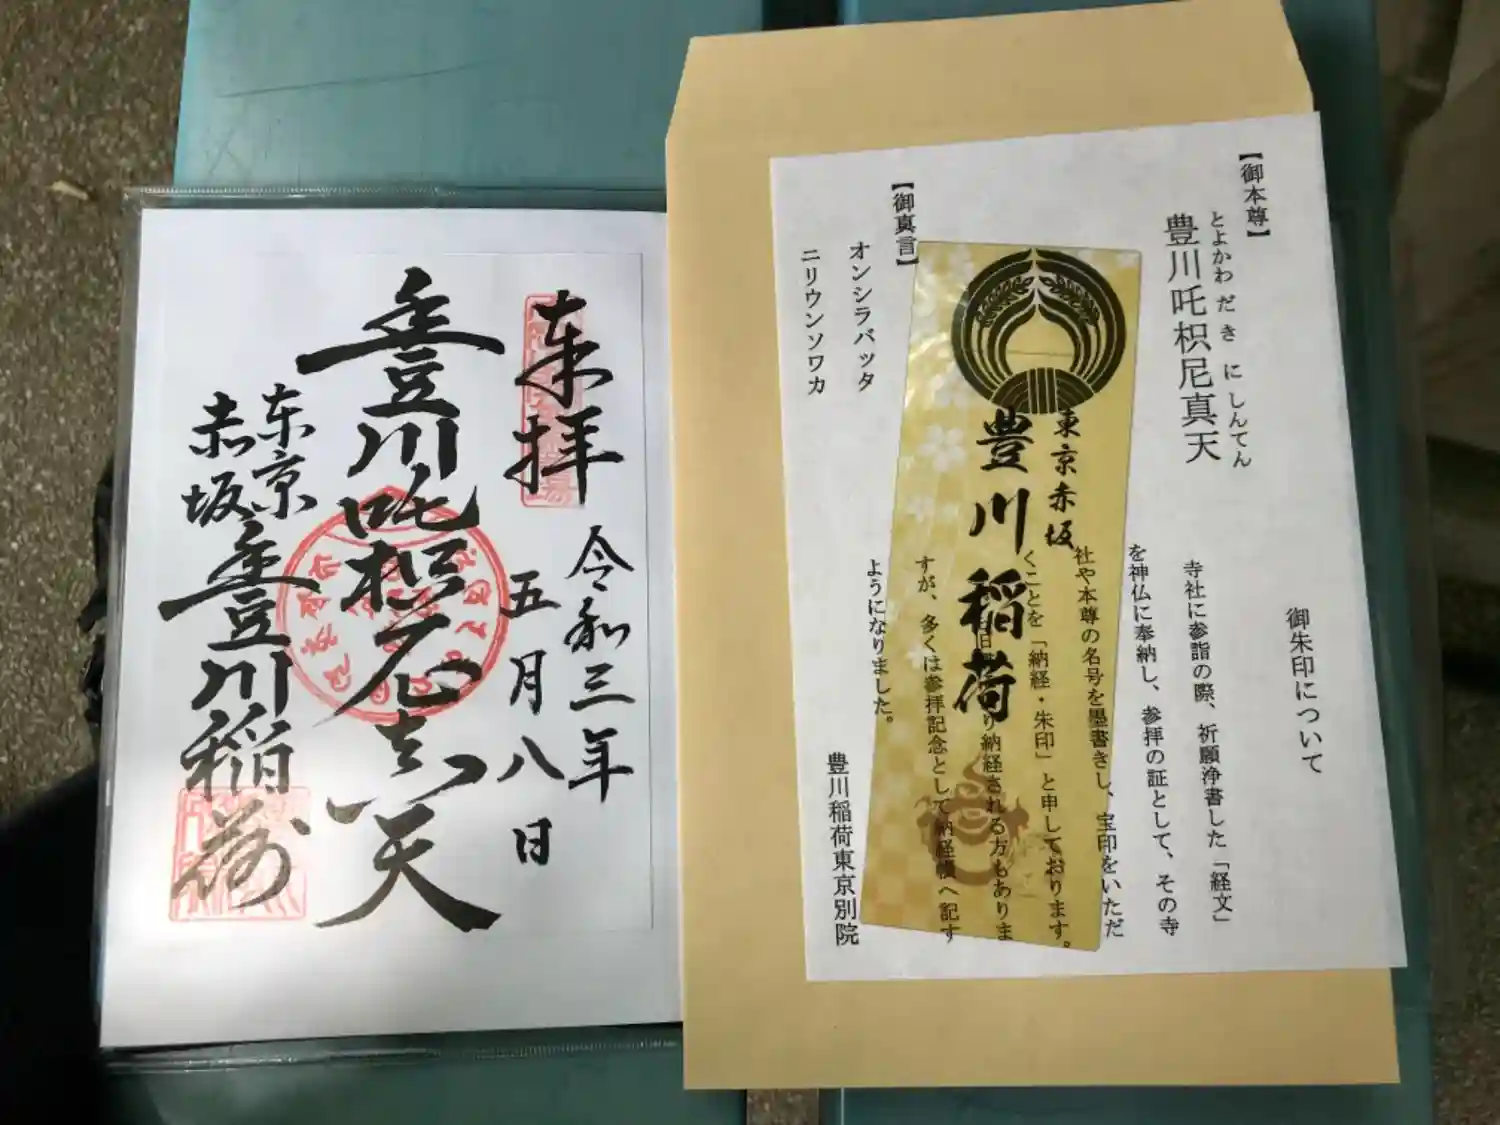 奉拝
令和三年
五月八日
豊川吒枳尼真天
東京
赤坂
豊川稲荷
【御本尊】
とよかわ だ き に しんてん
豊川吒枳尼真天
【御真言】
オンシラバッタ
ニリウンソワカ
東京赤坂
豊川稲荷
御朱印について
寺社に参詣の際、祈願浄書した「経文」
を神仏に奉納し、参拝の証として、その寺
社や本尊の名号を墨書きし、宝印をいただ
くことを「納経・朱印」と申しております。
り納経される方もありま
すが、多くは参拝記念として納経帳へ記す
ようになりました。
豊川稲荷東京別院